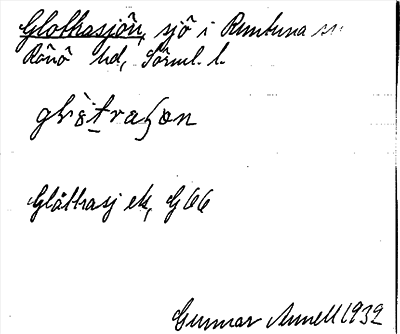 Glottrasjön, sjö i Runtuna sn
Rönö hd, Sörml. l.
Glåttrasj ek, G 66
Gunnar Annell 1932